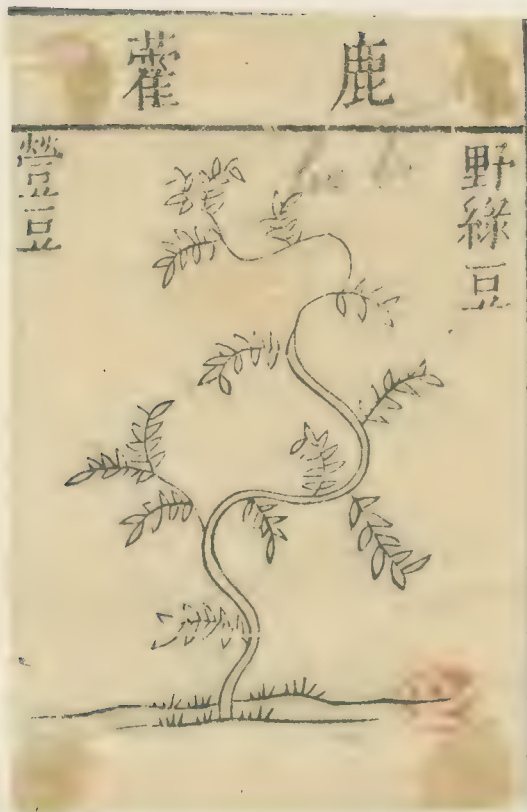 鹿藿
野綠豆
䝁豆